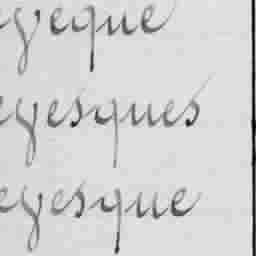 eyeque
eyesques
eyesque